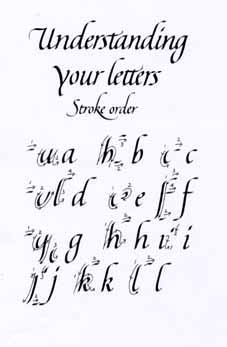 Understanding
Your letters
Stroke order
a a b b c c
d d e e f f
g g h h i i
j j k k l l